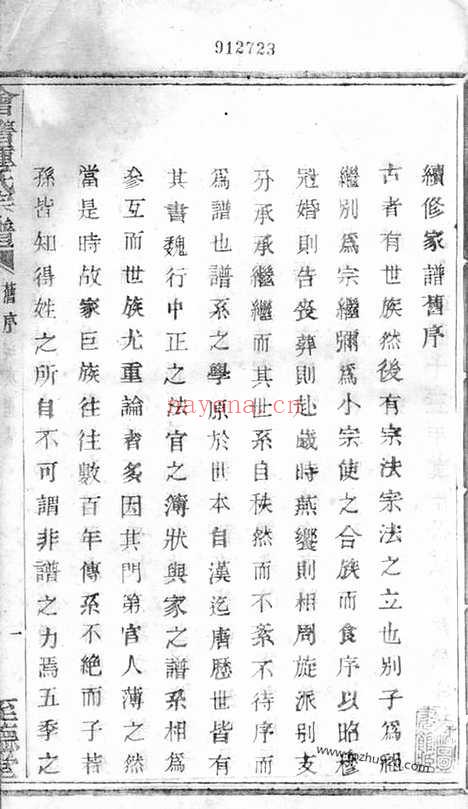 912723
續修家譜舊序
古者有世族然後有宗法宗法之立也別子爲祖
繼別爲宗繼禰爲小宗使之合族而食序以昭穆
冠婚則告喪葬則赴歲時燕饗則相周旋派別支
分承承繼繼而其世系自秩然而不紊不待序而
爲譜也譜系之學原於世本自漢迄唐歷世皆有
其書魏行中正之法官之簿狀與家之譜系相爲
參互而世族尤重論者多因其門第官人薄之然
當是時故家巨族往往數百年傳系不絕而子若
孫皆知得姓之所自不可謂非譜之力焉五季之
會稽鍾氏宗譜
舊序
一
nayona.cn